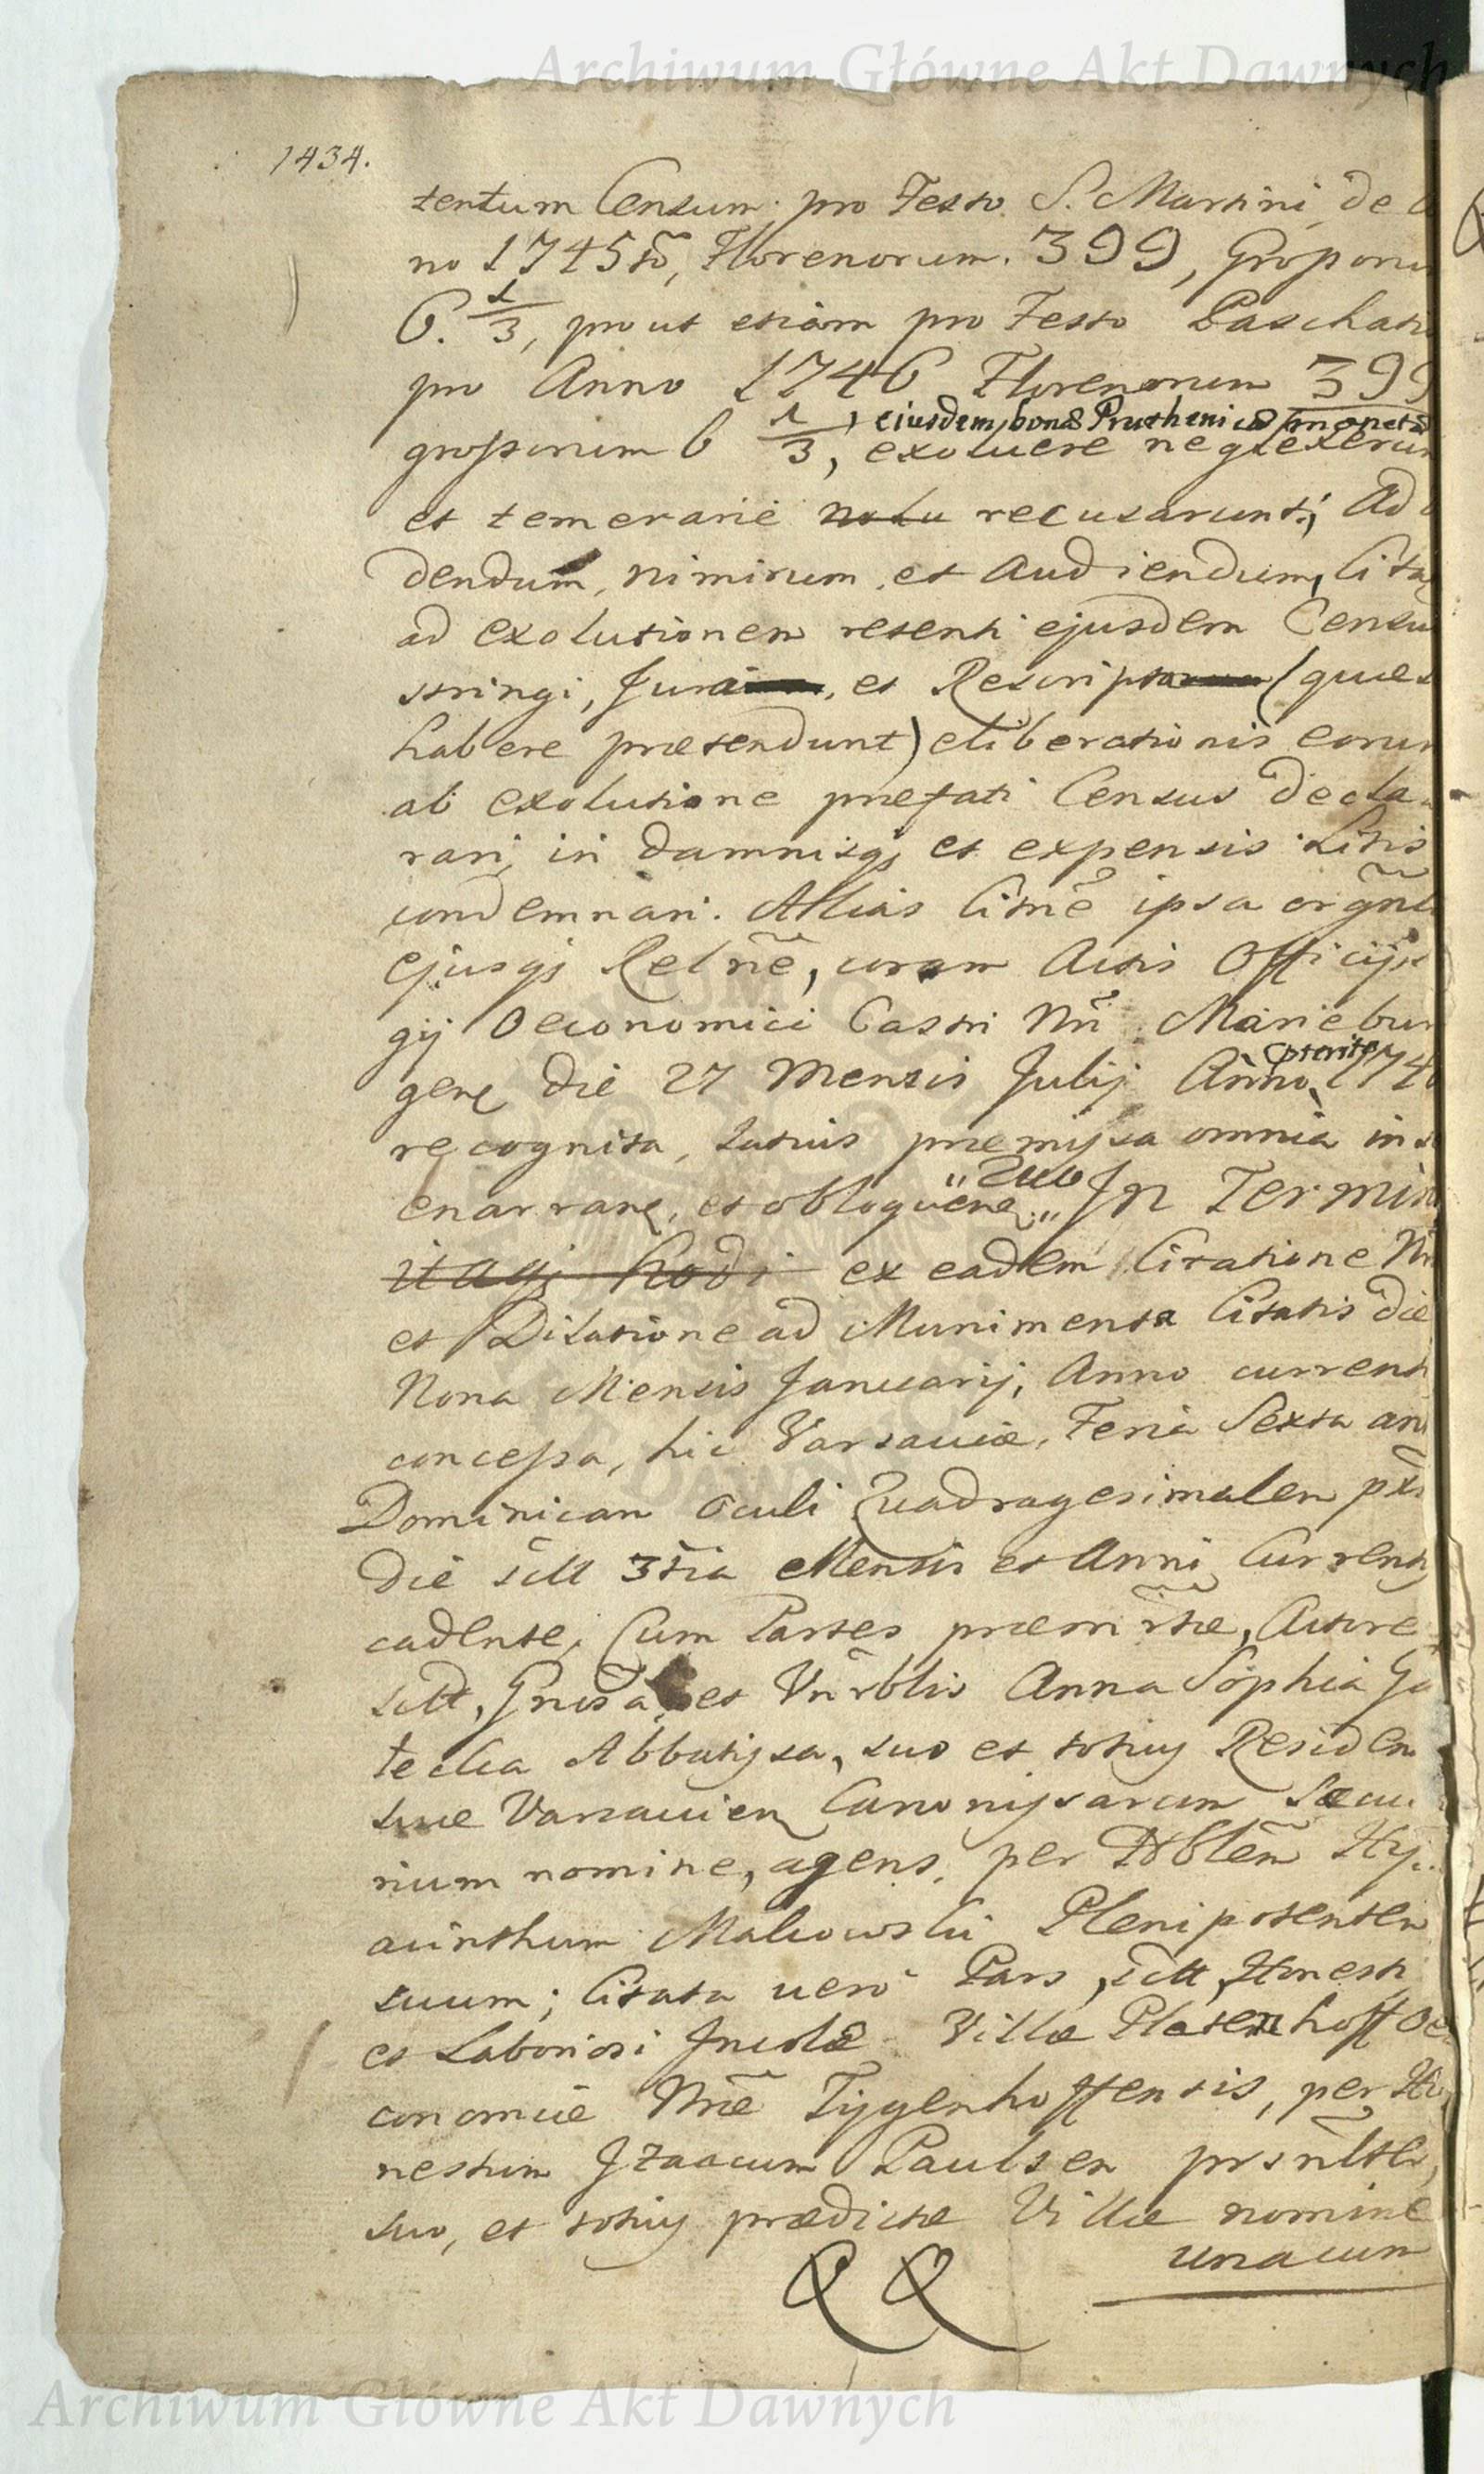 Archiwum Główne Akt Dawnych
1434.
tentum Censum pro Festo S. Martini de
no 1745to, Florenorum. 399, Grossorum
6. 1/3, prout etiam pro Festo Paschatis
pro Anno 1746 Florenorum 399
, ejusdem bonæ Pruthenicæ monetæ
grossorum 6 1/3, exoluere neglexerun
et temerarie nolu recusarunt; Ad
dendum, nimirum et audiendum, Cita
ad exolutionem retenti ejusdem Censu
stringi, Jura, et Rescripta (quæ
habere prætendunt) eliberationis eorum
ab exolutione præfati Census decla
rari, in damnisqs et expensis Litis
condemnari. Alias Citnē ipsa orgnli
ejusqs Relnē, coram Actis Officij
gij Oeconomici Castri Nri Mariebur
gen die 27 Mensis Julij Anno 174
recognita, latius præmissa omnia in
enarran, et obloquen " Quo In Termin
itaqs hodi ex eadem Citatione
et Dilatione ad Munimenta Citatis die
Nona Mensis Januarij, Anno current
concessa, hic Varsauiæ, Feria Sexta an
Dominicam Oculi Quadragesimalem
die sctt 3tia Mensis et Anni Current
cadente, Cum Partes præmissæ, Actore
sctt, Gnosa et Vnrblis Anna Sophia
tecka Abbatissa, suo et totius Residen
suæ Varsauien Canonissarum Sæcu
rium nomine, agens, per Nblem Hy
acinthum Makowski Plenipotentem
suum; Citata uero Pars, sctt, Honesti
et Laboriosi Incolæ Villæ Platenhoff Oe
conomiæ Nræ Tygenhoffensis, per Ho
nestum Izaacum Paulsen
suo, et totius prædictæ Villæ nomine
unacum
Archiwum Główne Akt Dawnych